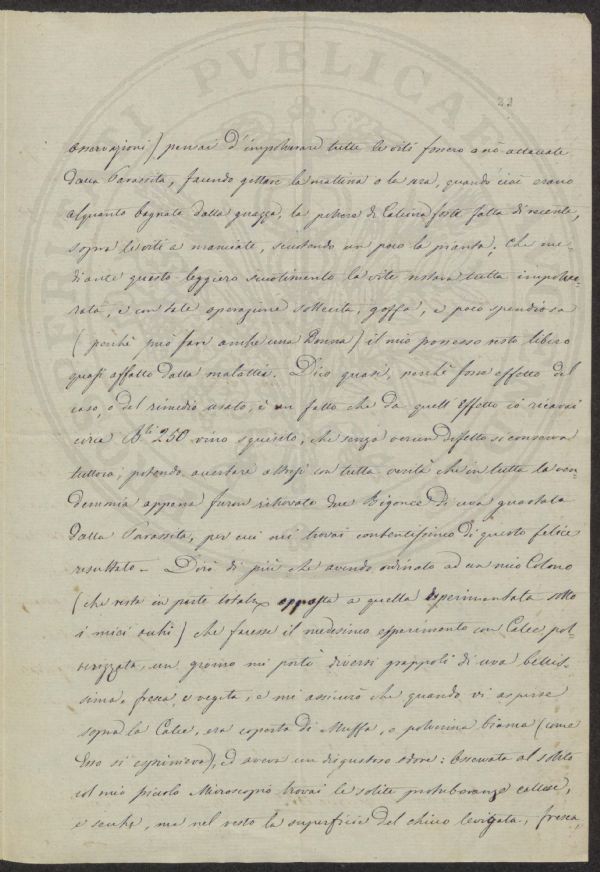 22
osservazioni) pensai d'impolverare tutte le viti fossero o nò attaccate
dalla Parassita, facendo gettare la mattina o la sera, quando cioè erano
alquanto bagnate dalla guazza, la polvere di Calcina forte fatta di recente,
sopra le viti a manciate, scuotendo un poco la pianta; che me-
diante questo leggiero scuotimento la vite restava tutta impolve-
rata, e con tale operazione sollecita, goffa, e poco spendiosa
(perchè può fare anche una Donna) il mio possesso restò libero
quasi affatto dalla malattia. Dico quasi, perchè fosse effetto del
caso, o del rimedio usato, è un fatto che da quell'effetto io ricavai
circa Bli 250 vino squisito, che senza verun difetto si conserva
tuttora; potendo accertare altresì con tutta verità che in tutta la ven-
demmia appena furon ritrovate due Bigonce di uva guastata
dalla Parassita, per cui mi trovai contentissimo di questo felice
resultato — Dirò di più che avendo ordinato ad un mio Colono
(che resta in parte totale opposta a quella esperimentata sotto
i miei occhi) che facesse il medesimo esperimento con Calce pol-
verizzata, un giorno mi portò diversi grappoli di uva bellis-
sima, fresca, e vegeta, e mi assicurò che quando vi asperse
sopra la Calce, era coperta di Muffa, o polverina bianca (come
Esso si esprimeva), ed aveva un disgustoso odore: Osservata al solito
col mio piccolo Microscopio trovai le solite protuberanze callose,
e secche, ma nel resto la superficie del chicco levigata, fresca,